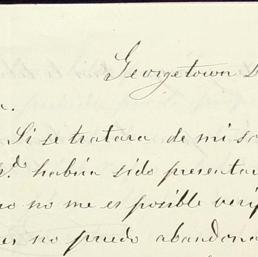 Georgetown D
a.
Si se tratara de mi so
S.do habria sido presentar
no me es posible veri
no puedo abandona